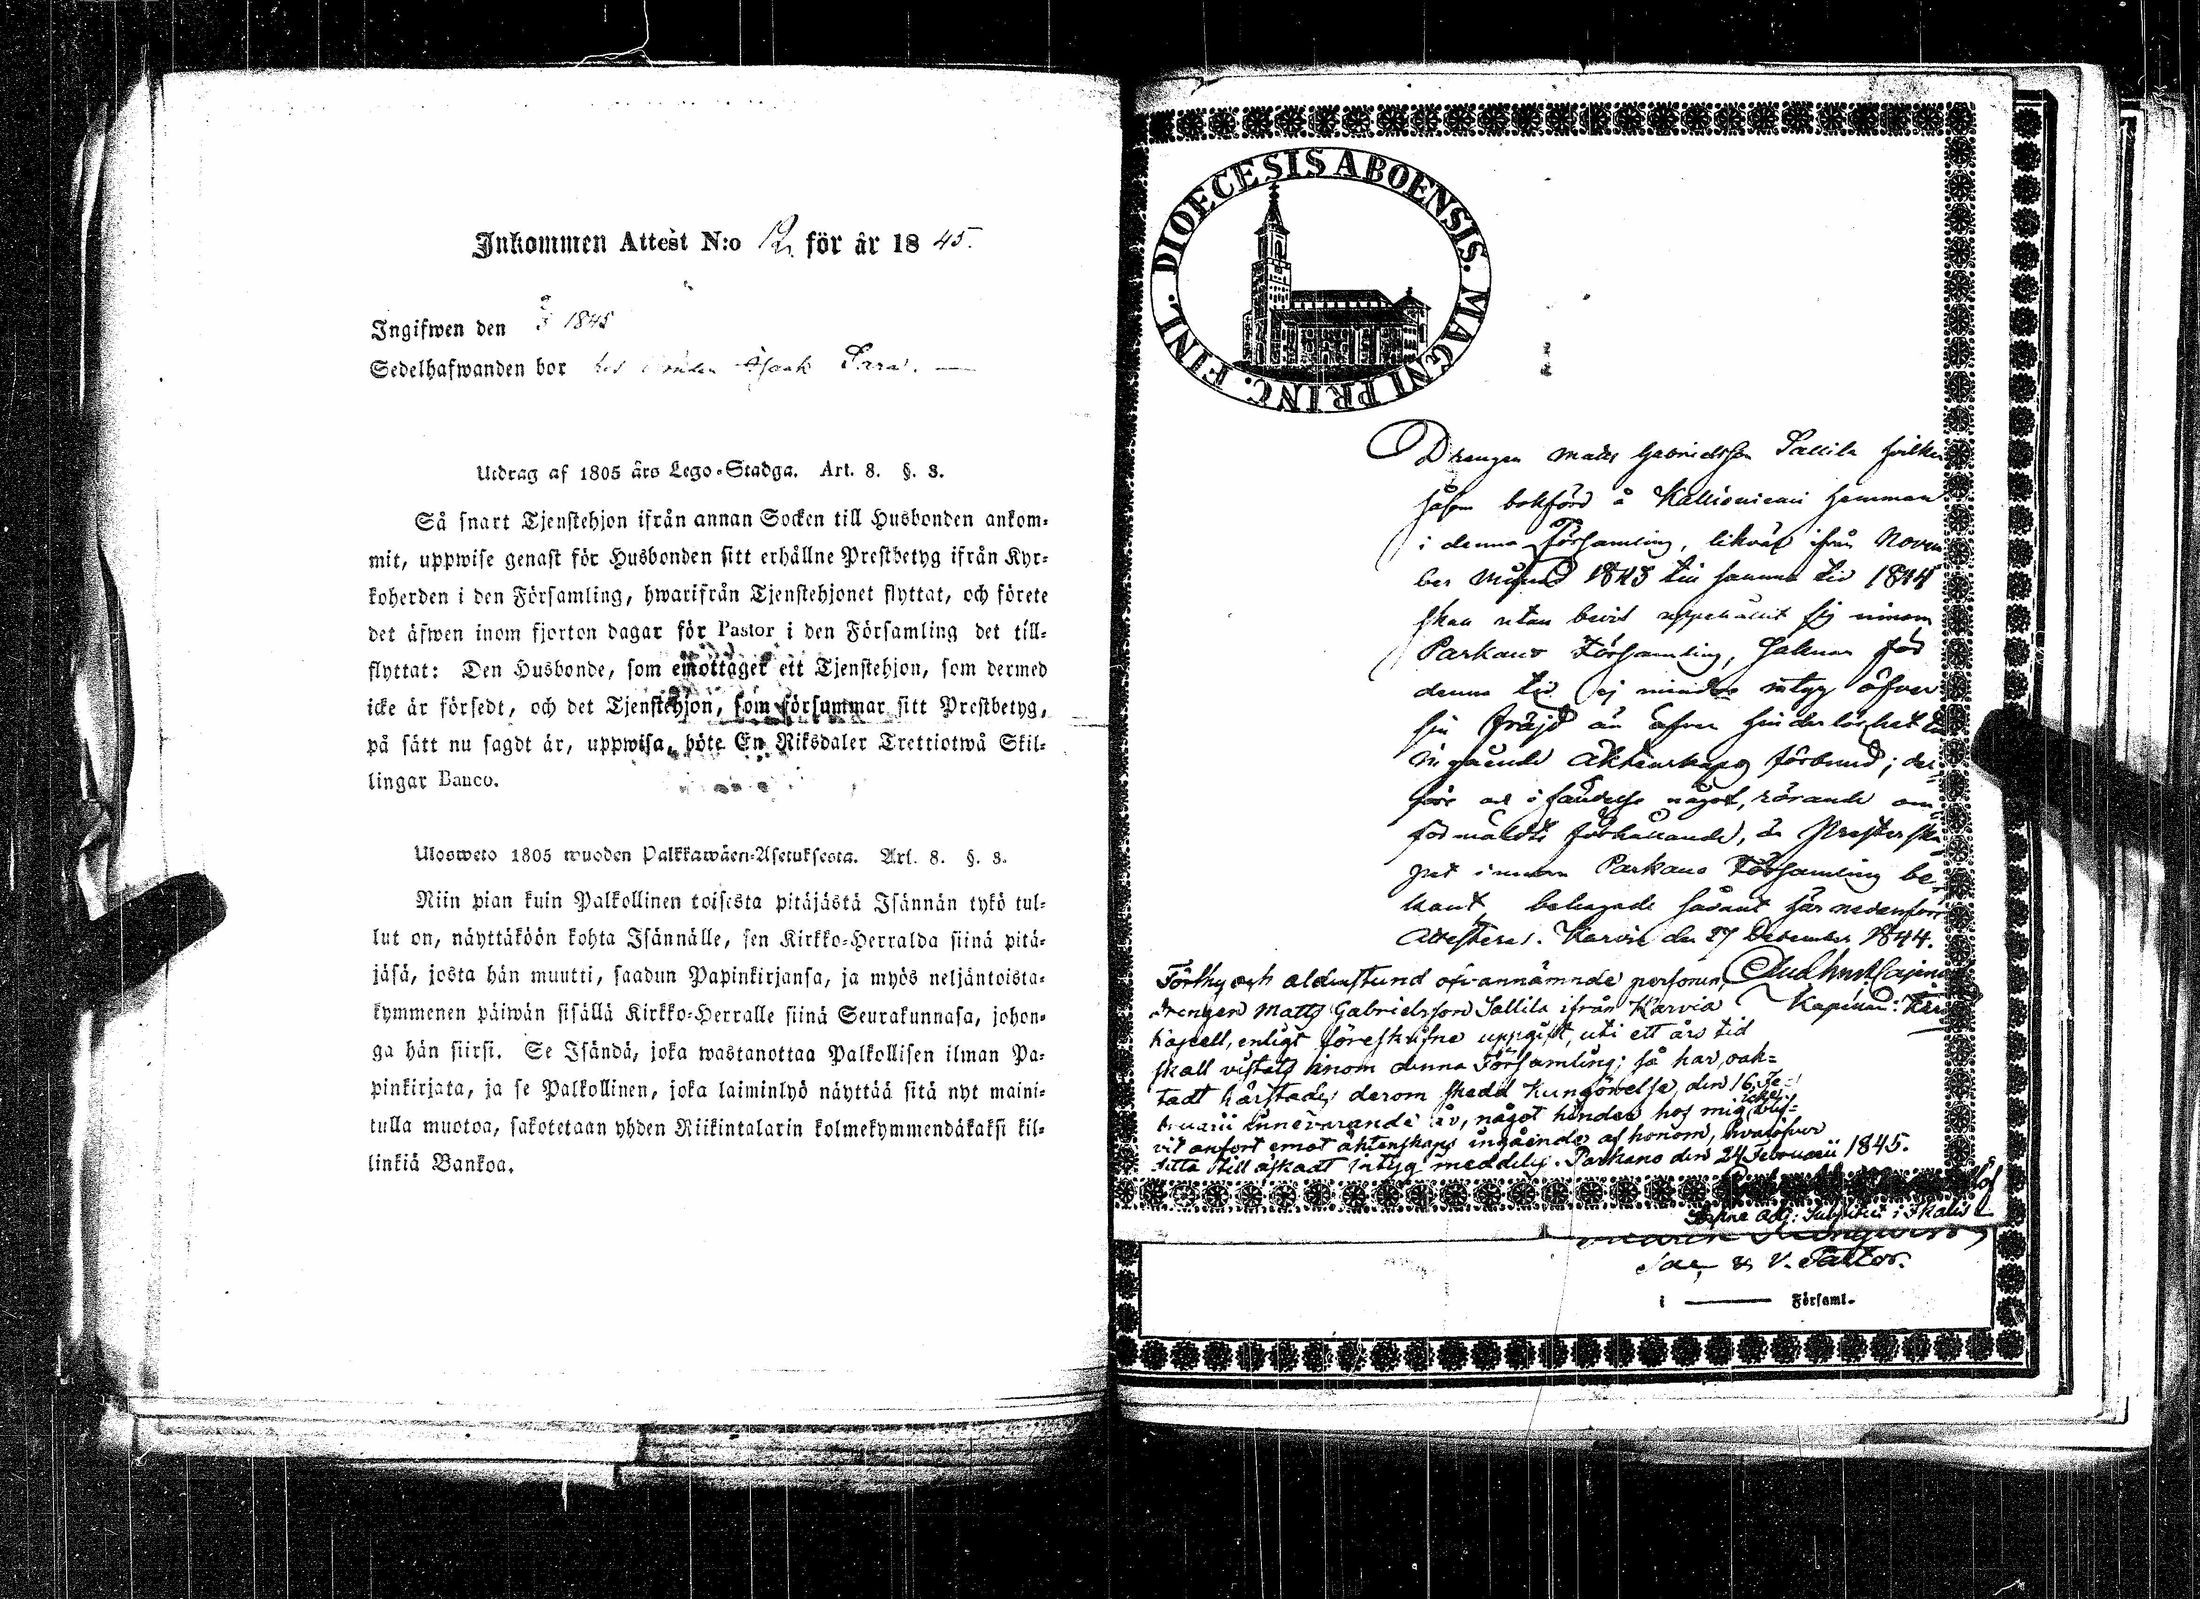 Inkommen Attest N:o 12. för år 1845.
Ingifwen den 3 1845
Sedelhafwanden bor hos
Utdrag af 1805 års Lego-Stadga. Art. 8. §. 3.
Så snart Tjenstehjon ifrån annan Socken till Husbonden ankom-
mit, uppwise genast för Husbonden sitt erhållne Prestbetyg ifrån Kyr-
koherden i den Församling, hwarifrån Tjenstehjonet flyttat, och förete
det äfwen inom fjorton dagar för Pastor i den Församling det till-
flyttat: Den Husbonde, som emottager ett Tjenstehjon, som dermed
icke är försedt, och det Tjenstehjon, som försummar sitt Prestbetyg,
på sätt nu sagdt är, uppwisa, böte En Riksdaler Trettiotwå Skil-
lingar Banco.
Ulosweto 1805 wuoden Palkkawäen-Asetuksesta. Art. 8. §. 3.
Niin pian kuin Palkollinen toisesta pitäjästä Isännän tykö tul-
lut on, näyttäköön kohta Isännälle, sen Kirkko-Herralda siinä pitä-
jäsä, josta hän muutti, saadun Papinkirjansa, ja myös neljäntoista-
kymmenen päiwän sisällä Kirkko-Herralle siinä Seurakunnasa, johon-
ga hän siirsi. Se Isändä, joka wastanottaa Palkollisen ilman Pa-
pinkirjata, ja se Palkollinen, joka laiminlyö näyttää sitä nyt maini-
tulla muotoa, sakotetaan yhden Riikintalarin kolmekymmendäkaksi kil-
linkiä Bankoa.
DIOECESIS ABOENSIS. MAGNI PRINC. FINL.
Drengen Matts Gabrielsson Sallila hvilken
såsom bokförd å hemman
i denna Församling, likväl ifrån Novem
ber månad 1843 till samma tid 1844
skall utan bevis uppehållit sig innom
Parkano Församling, saknar för
denna tid ej mindre intyg öfver
sin fräjd än öfver hinderlöshet till
ingående äktenskaps förbund; der-
före och i händelse något, rörande om-
förmäldte förhållande, är Presterska-
pet innom Parkano Församling be-
kant behagade sådant här nedanföre
attesteras. Karvia den 27 December 1844.
Förthy och aldenstund ofvannämnde person,
drengen Matts Gabrielsson Sallila ifrån Karvia
Kapell, enligt föreskrifne uppgift, uti ett års tid
skall vistats inom denna Församling; så har, oak-
tadt härstädes derom skedd kungörelse, den 16 Fe-
bruarii innevarande år, något hinder hos mig icke blif-
vit anfört emot äktenskaps ingående af honom, hvaröfver
detta till äskadt intyg meddelas. Parkano den 24 Februarii 1845.
V. Pastor.
i ——— Församl.